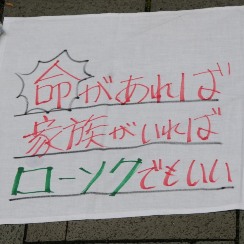 命があれば
家族がいれば
ローソクでもいい